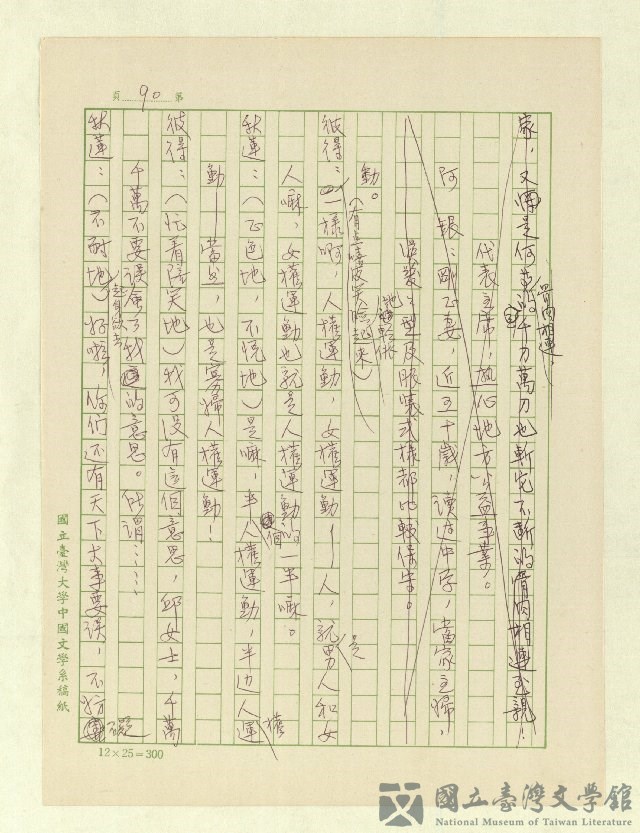 第 90 頁
家,又是何萬的千刀萬刀也斬它不斷的骨肉相連至親!
骨肉相連
代表主席,熱心地方公益事業。
阿銀:剛正妻,近五十歲,讀过中学,當家主婦,
髮型及服裝式樣都比較保守。
動。(有点嘻皮笑臉起來)
彼得:一樣啊,人權運動,女權運動——人,就是男人和女
人嘛,女權運動也就是人權運動的一半嘛。
秋蓮:(正色地,不悅地)是嘛,半个人權運動,半边人權運
動——當然,也是寡婦人權運動!
彼得:(忙着陪笑地)我可沒有這個意思,邱女士,千萬
千萬不要誤會了我的意思。所謂……
秋蓮:(不耐地,起身欲去)好啦,你們还有天下大事要談,不妨礙
國立臺灣大學中國文學系稿紙
12×25=300
國立臺灣文學館
National Museum of Taiwan Literature